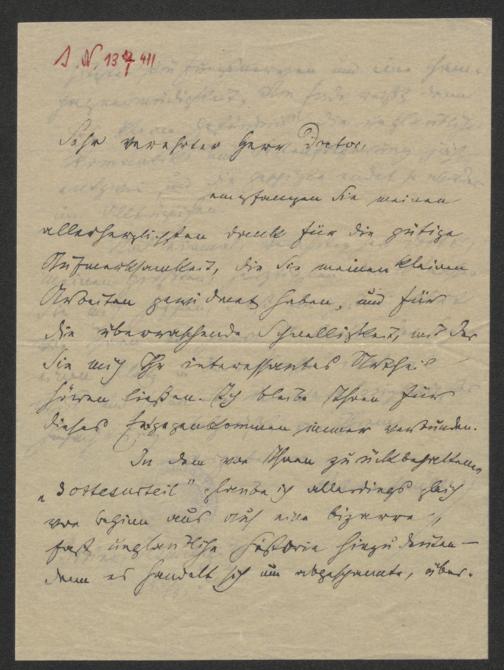 Sehr verehrter Herr Doctor,
empfangen Sie meinen
allerherzlichsten Dank für die gütige
Aufmerksamkeit, die Sie meinen kleinen
Arbeiten gewidmet haben, und für
die überraschende Schnelligkeit, mit der
Sie mich Ihr interessantes Urtheil
hören ließen. Ich bleibe Ihnen für
dieses Entgegenkommen immer verbunden.
In dem von Ihnen zurückbehaltenen
„Gottesurteil" glaube ich allerdings gleich
von Beginn aus auf eine bizarre,
fast unglaubliche Historie hinzudeuten —
denn es handelt sich um abgespannte, über-